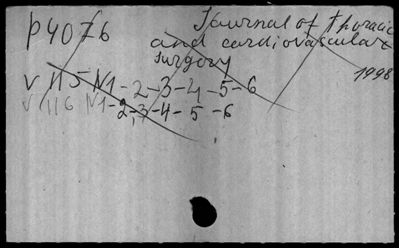 p4076
Journal of Thoracic
and cardiovascular
surgery
1998
V 115 N1-2-3-4-5-6
V 116 N1-2-3-4-5-6